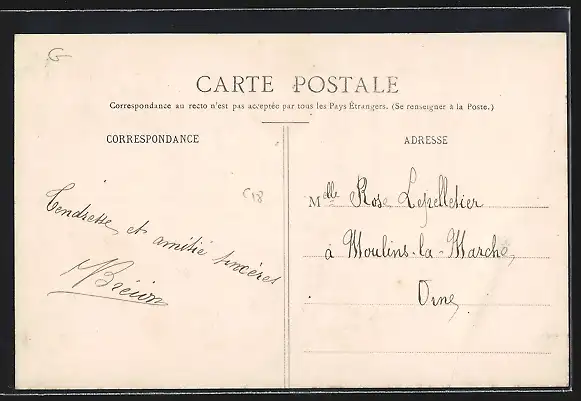 G
CARTE POSTALE
Correspondance au recto n'est pas acceptée par tous les Pays Étrangers. (Se renseigner à la Poste.)
CORRESPONDANCE
C18
Tendresse et amitié sincères
ADRESSE
Mlle Rose Lepelletier
à Moulins-la-Marche
Orne